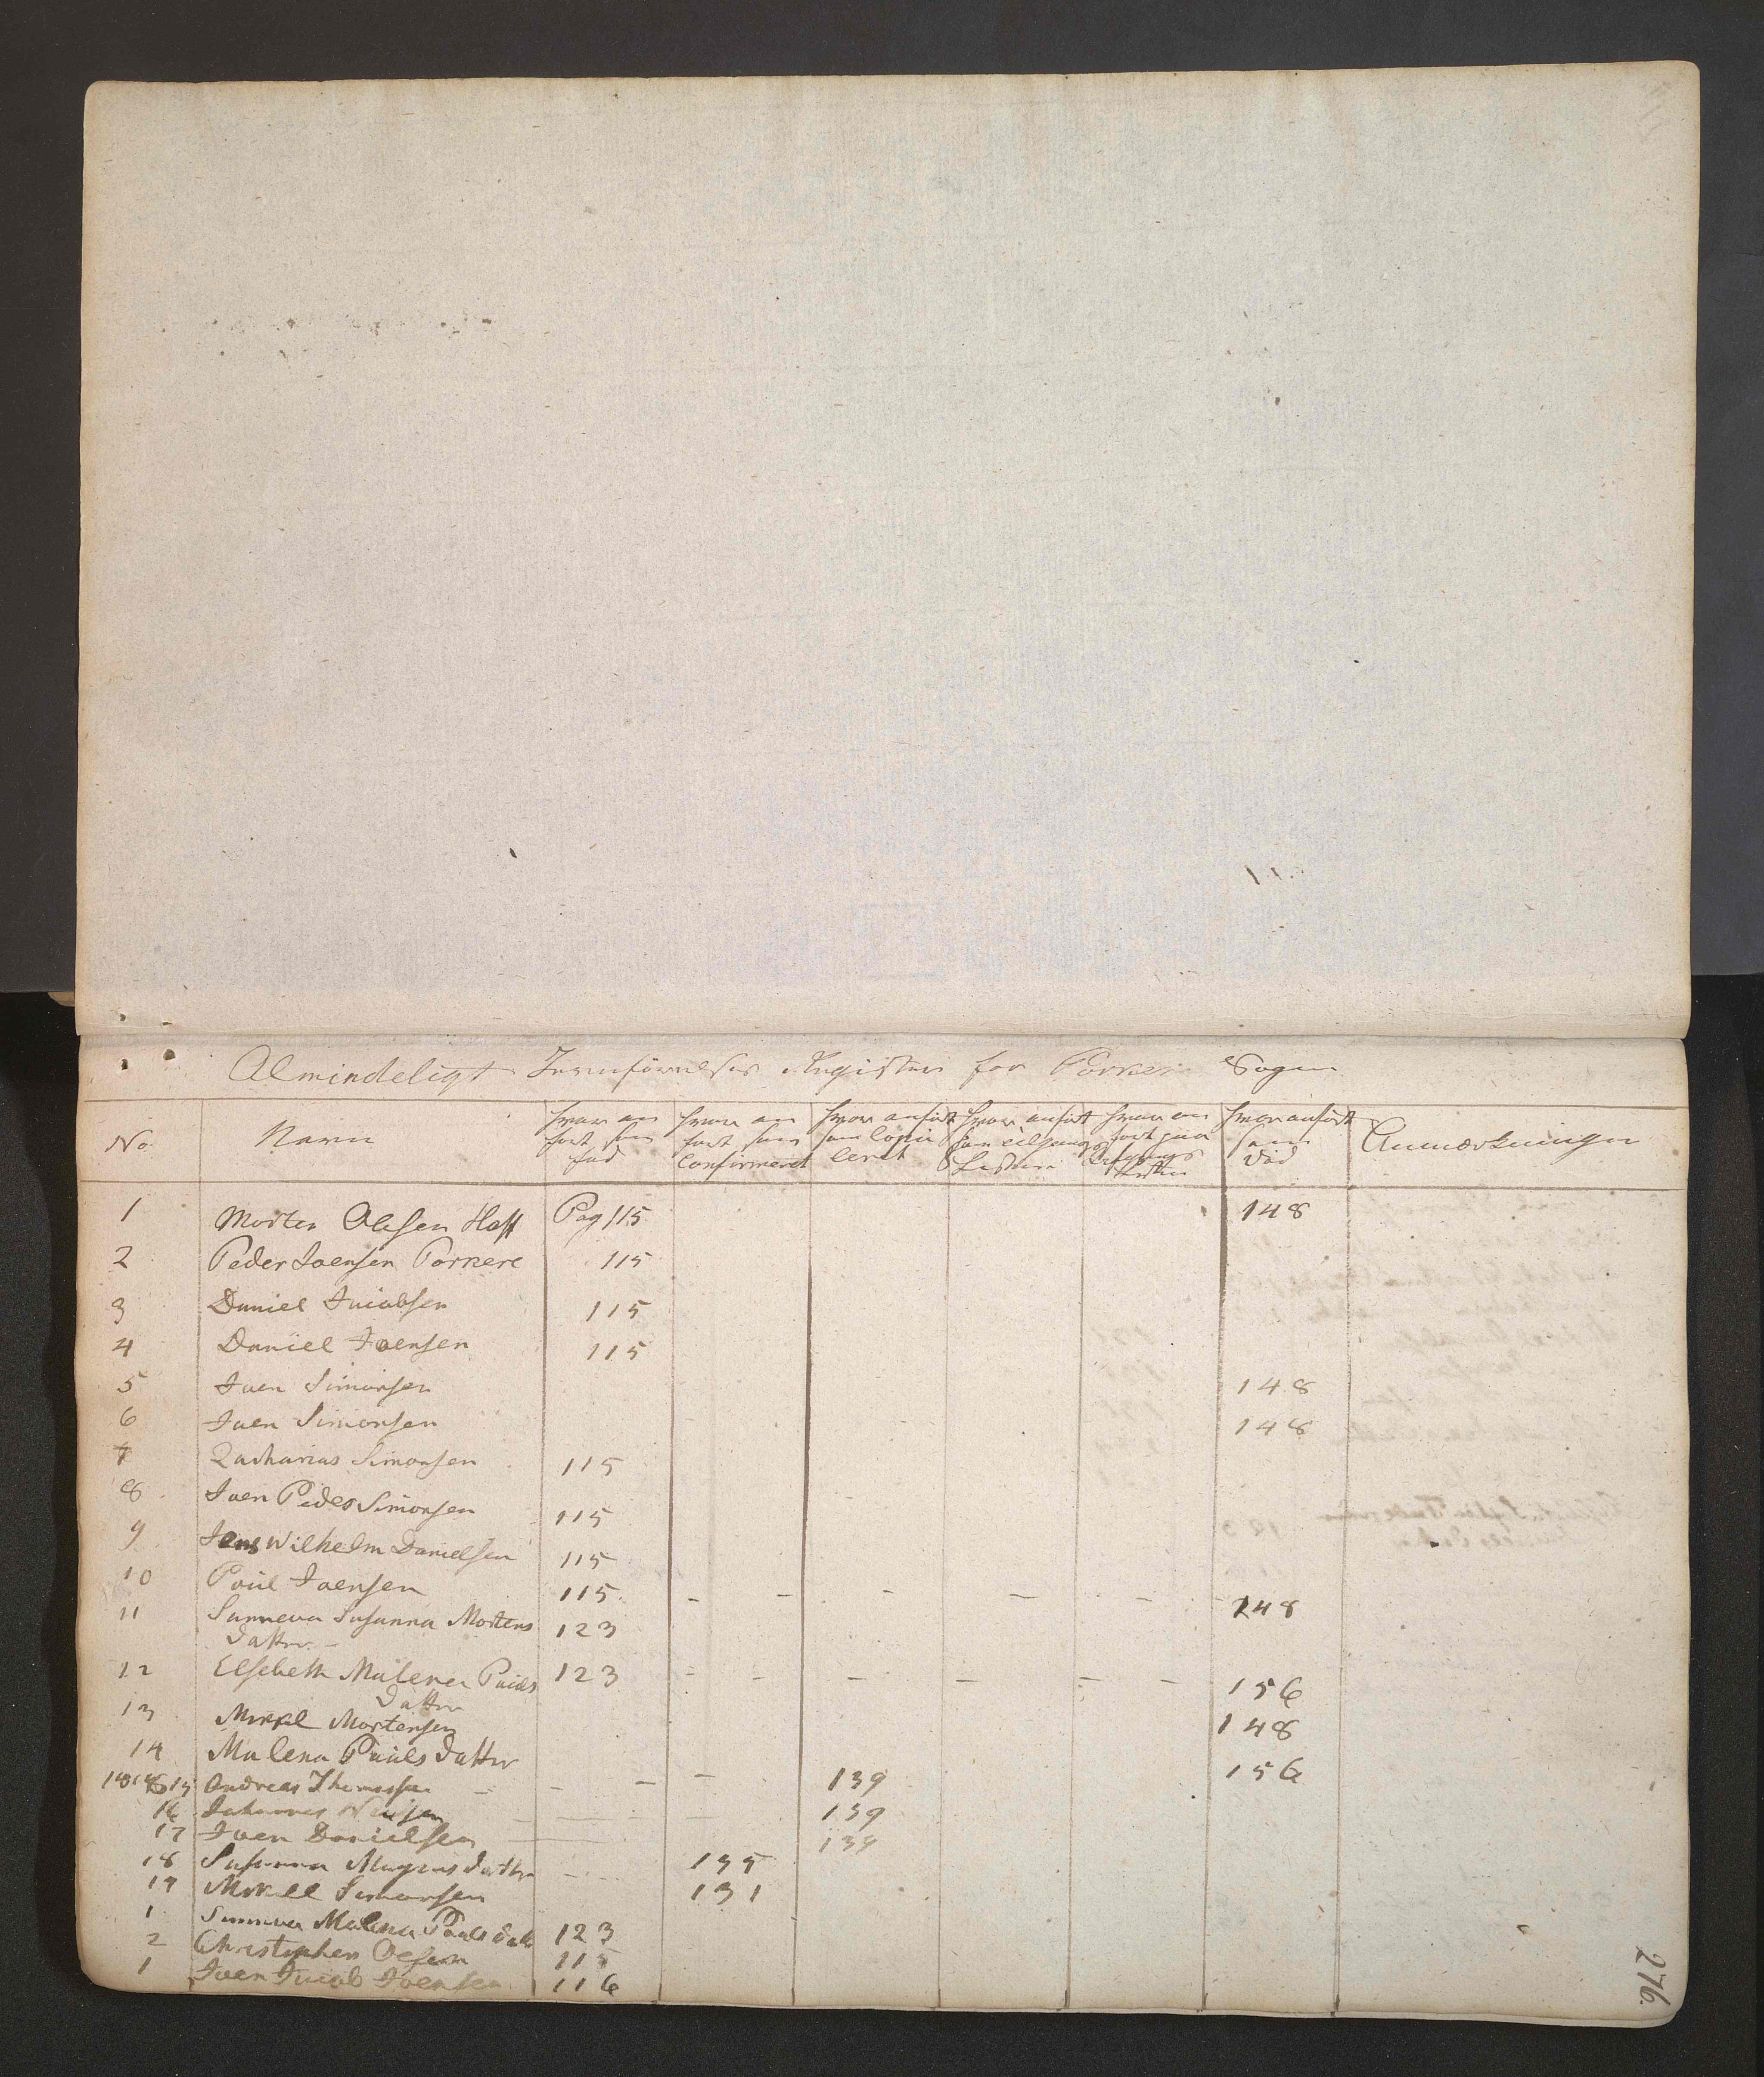 Almindeligt Jevnførelses Register for Porkere Sogn
No. Navn hvor an ført som fød hvor an ført som Confirmeret hvor anført som Copuleret hvor anført som tilgangs Listen hvor an ført paa Afgangs Listen hvor anført som Død Anmærkninger
1 Morten Olesen Hoff Pag 115 148
2 Peder Joensen Porkere 115
3 Daniel Jacobsen 115
4 Daniel Joensen 115
5 Joen Simonsen 148
6 Joen Simonsen 148
7 Zacharias Simonsen 115
8 Joen Peder Simonsen 115
9 Jens Wilhelm Danielsen 115
10 Poul Joensen 115 - - - - 148
11 Sunneva Susanna Mortens 123
Datter
12 Elsebeth Malena Pouls 123 - - - - - - 156
Datter
13 Mikkel Mortensen 148
14 Malena Pouls Datter 156
15 Andreas Thomassen - - - - 139
16 Johannes 139
17 Joen Danielsen 139
18 Susanna Magnus Datter 135
19 Mikkel Simonsen 131
1 Sunneva Malena Pouls Datt 123
2 Christopher Olesen 115
1 Joen Jacob Joensen 116
276.